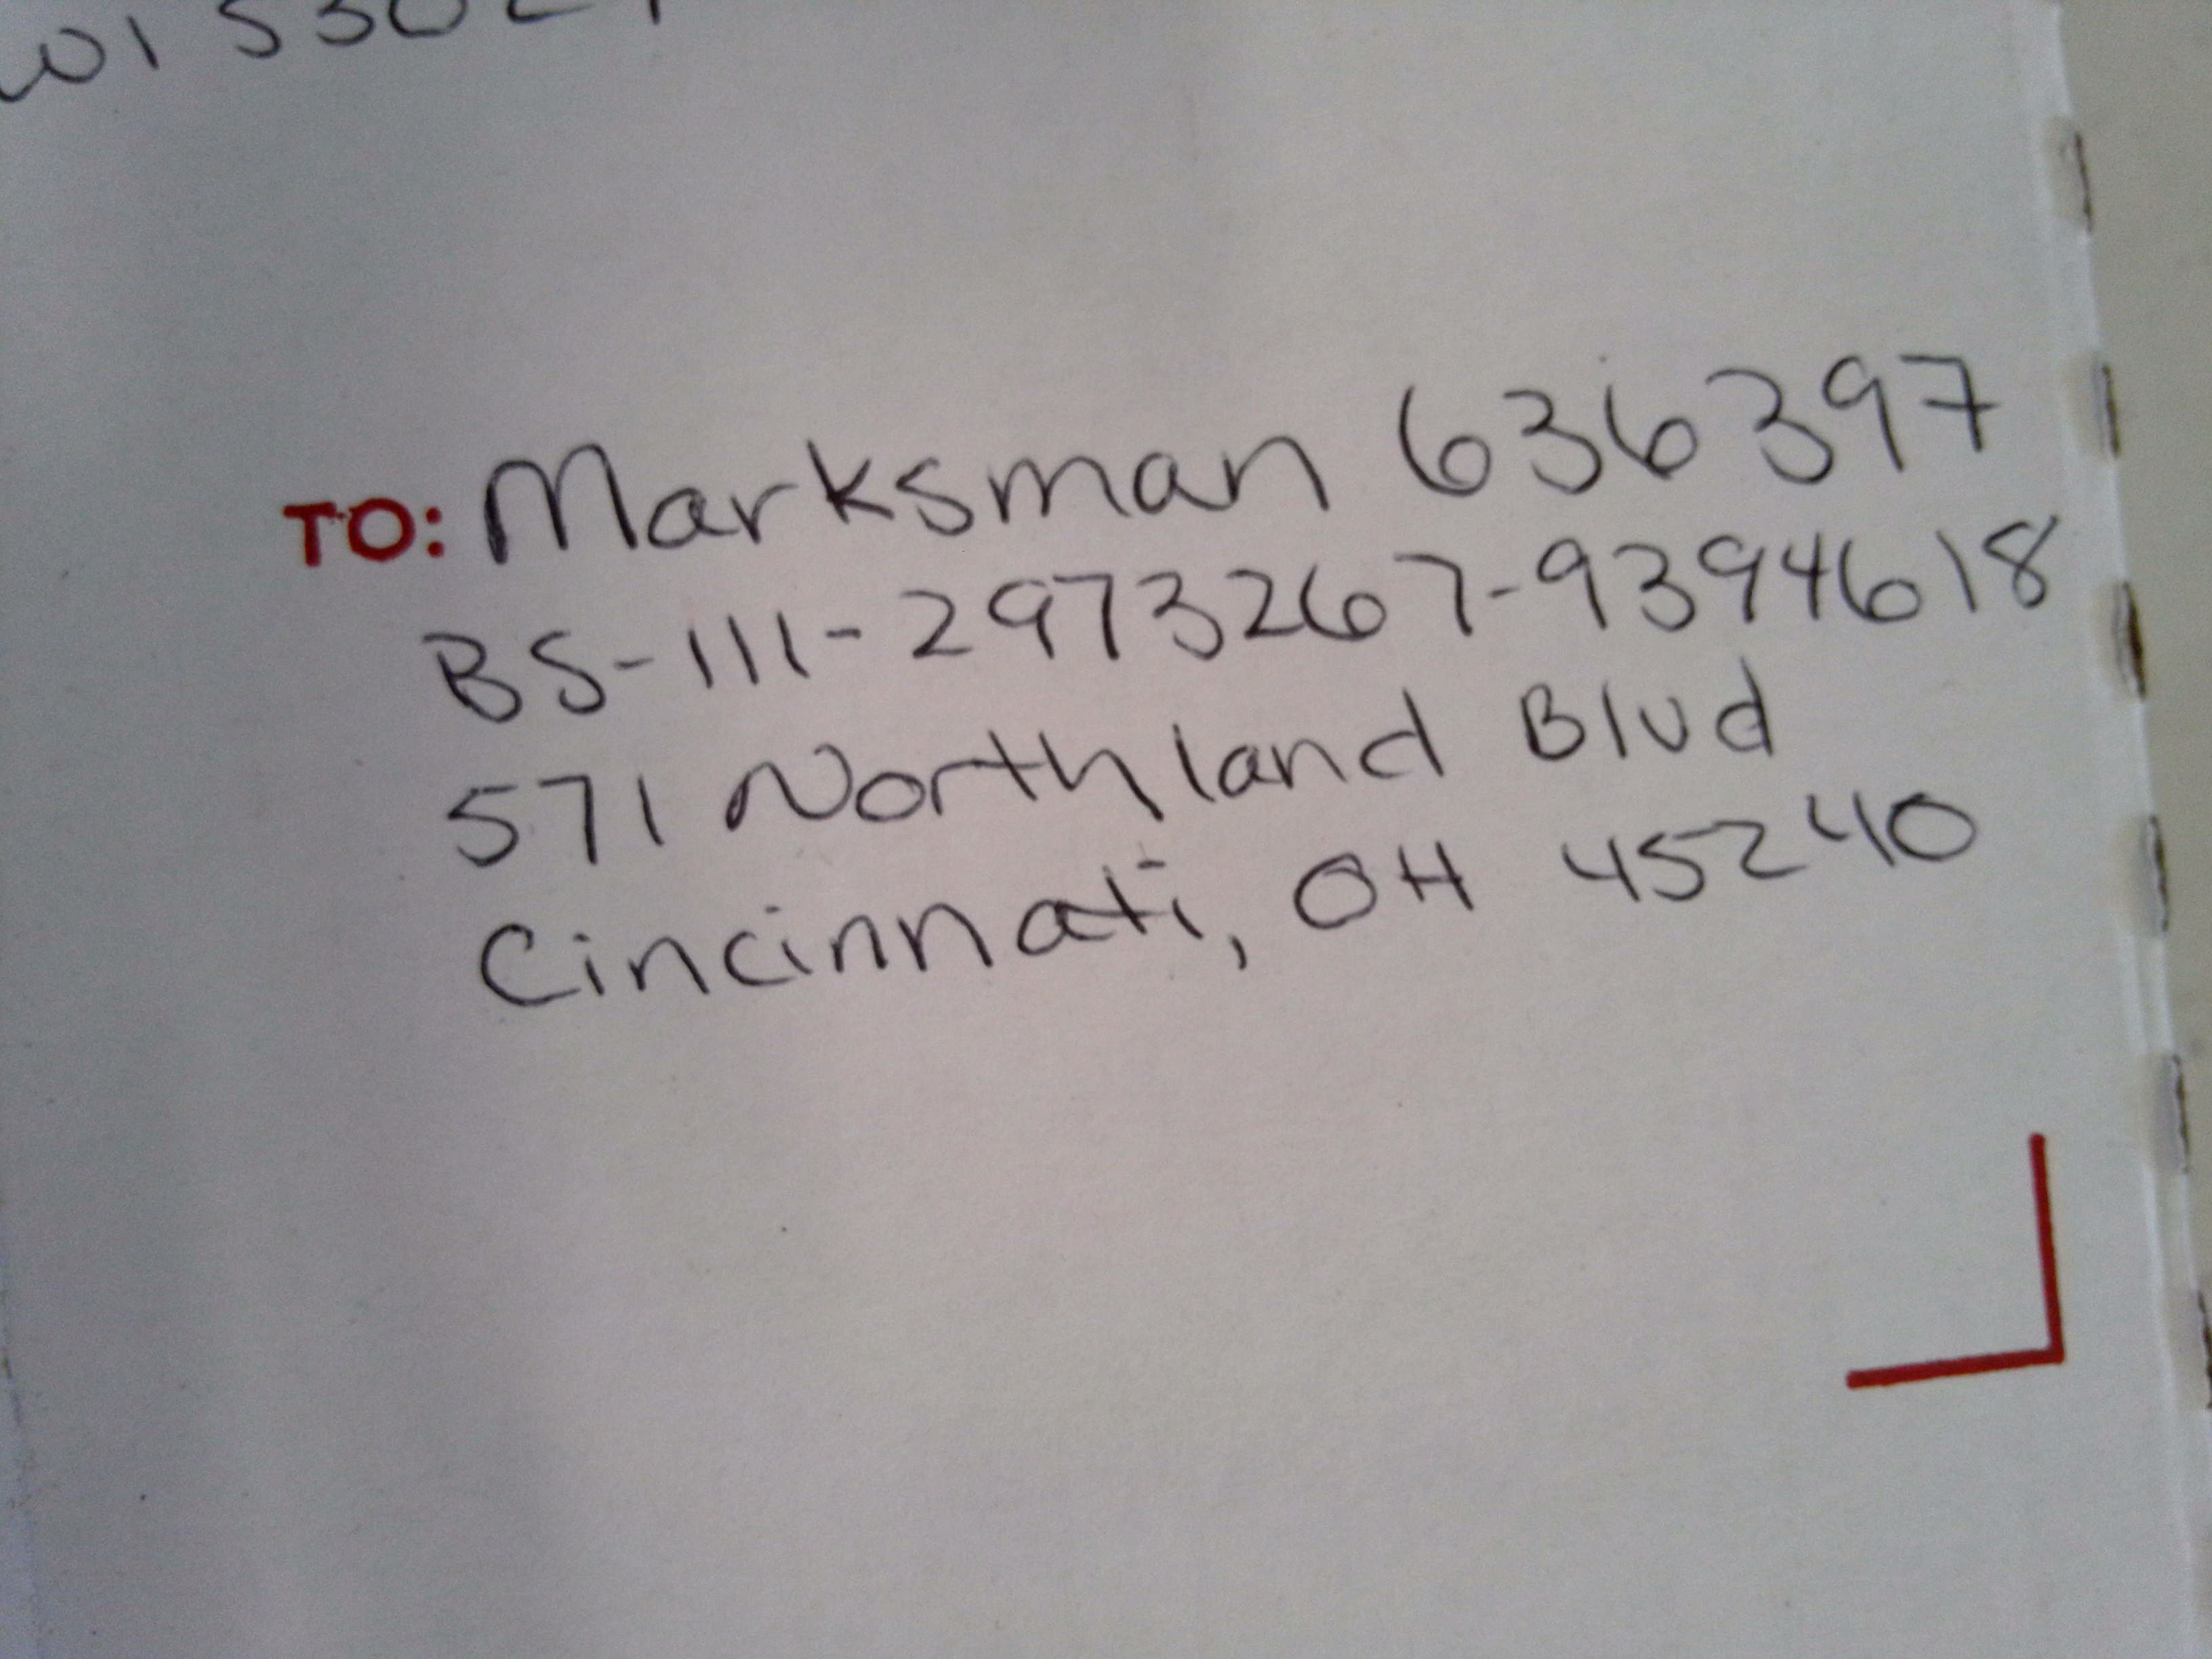 WI 5302
TO: Marksman 636397
BS-111-2973267-9394618
571 Northland Blvd
Cincinnati, OH 45240